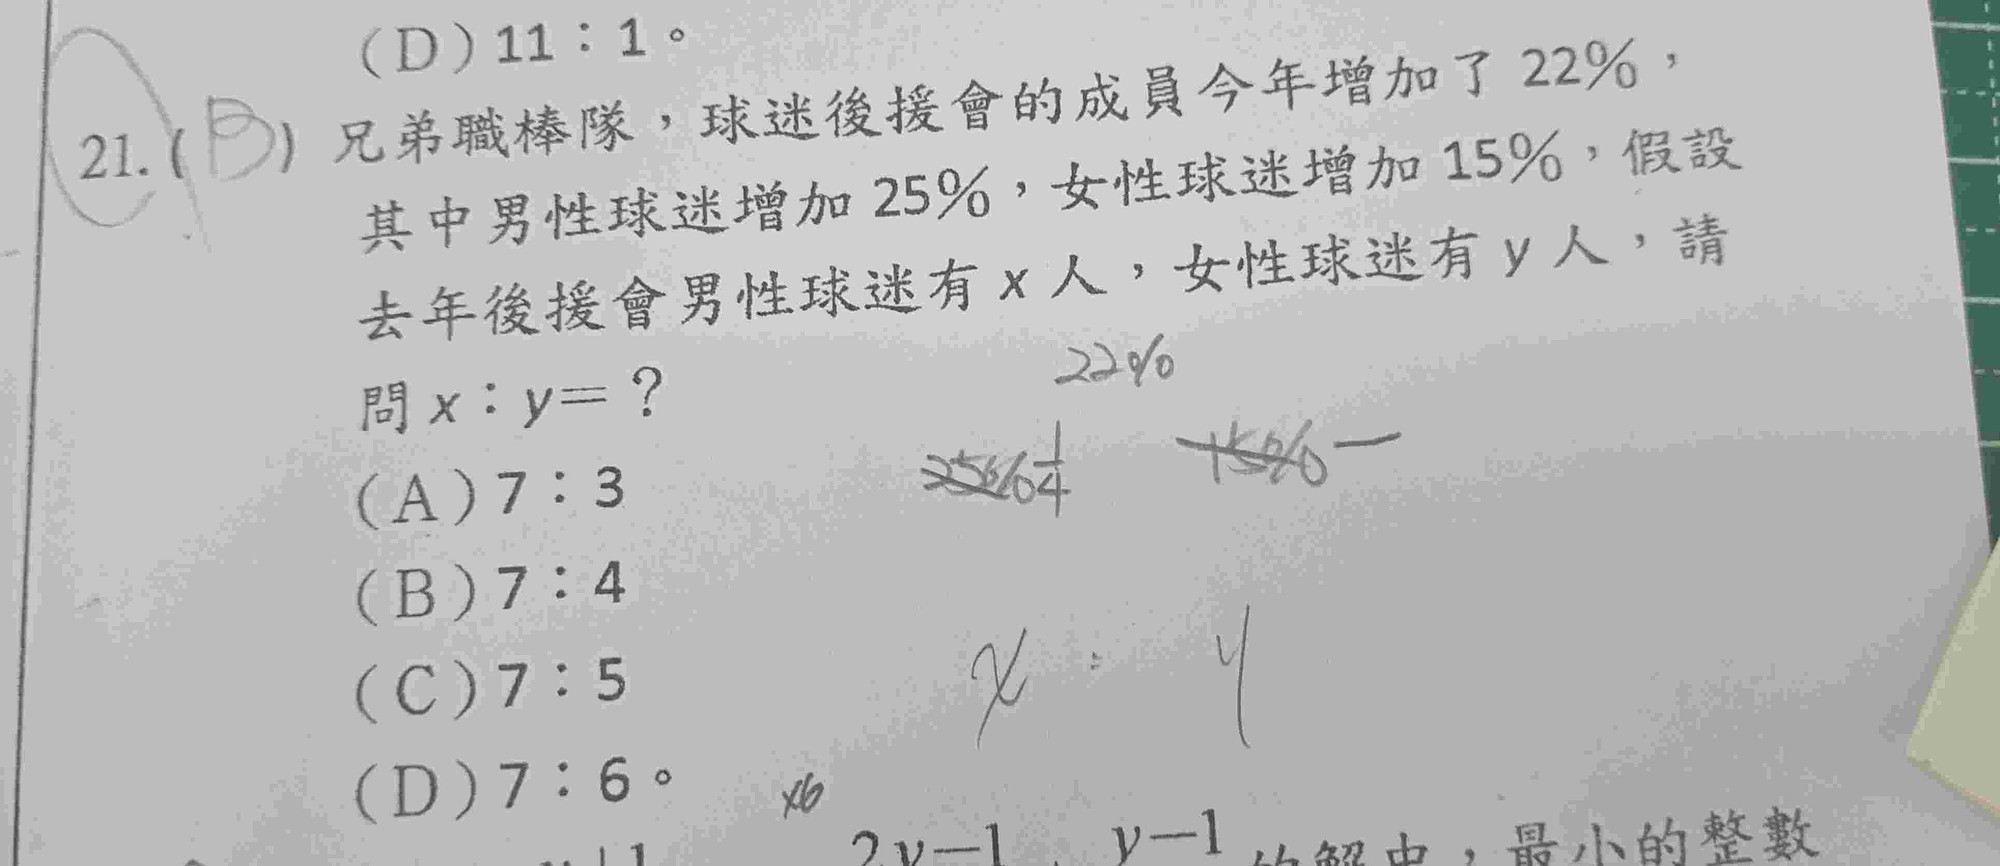 (D) 11：1。
21.( B ) 兄弟職棒隊，球迷後援會的成員今年增加了 22%，
其中男性球迷增加 25%，女性球迷增加 15%，假設
去年後援會男性球迷有 x 人，女性球迷有 y 人，請
問 x：y=？
22%
(A) 7：3
25% 1/4 15% —
(B) 7：4
(C) 7：5
x : y
(D) 7：6。
x6
2y-1 y-1 的解中，最小的整數